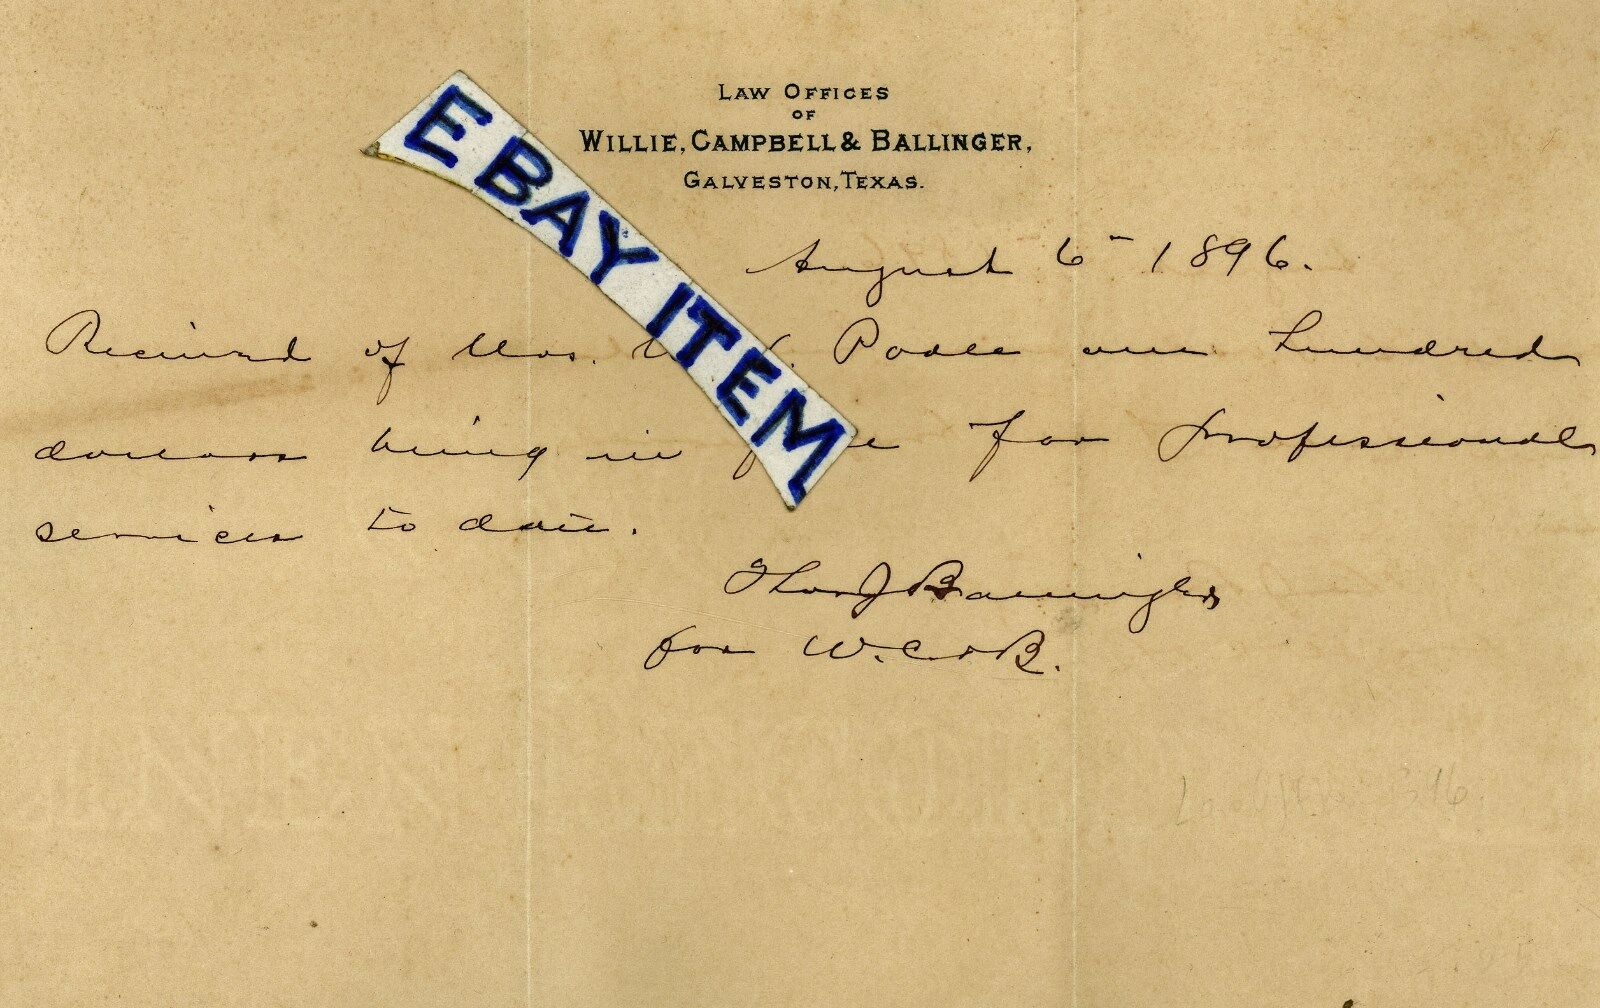 LAW OFFICES
OF
WILLIE, CAMPBELL & BALLINGER,
GALVESTON, TEXAS.
EBAY ITEM
August 6 1896.
Received of Mrs. Poole one hundred
dollars being in for professional
services to date.
Thos J Ballinger
for W. C & B.